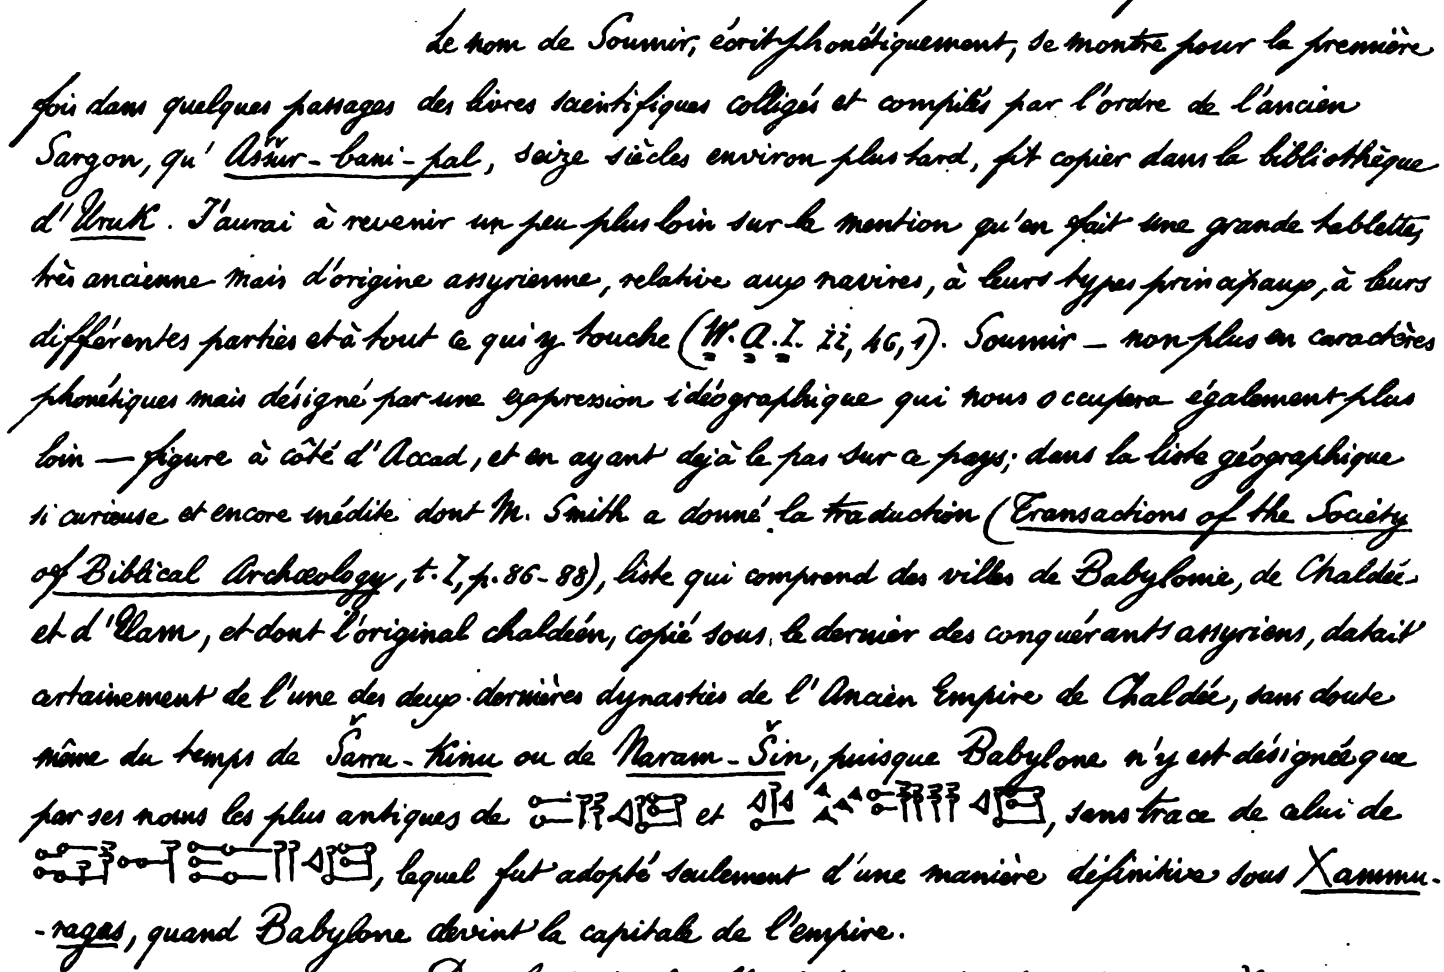 Le nom de Soumir, écrit phonétiquement, se montre pour la première
fois dans quelques passages des livres scientifiques colligés et compilés par l'ordre de l'ancien
Sargon, qu' Aššur-bani-pal, seize siècles environ plus tard, fit copier dans la bibliothèque
d'Uruk. J'aurai à revenir un peu plus loin sur la mention qu'en fait une grande tablette,
très ancienne mais d'origine assyrienne, relative aux navires, à leurs types principaux, à leurs
différentes parties et à tout ce qui y touche (W.A.I. ii, 46, 1). Soumir — non plus en caractères
phonétiques mais désigné par une expression idéographique qui nous occupera également plus
loin — figure à côté d'Accad, et en ayant dejà le pas sur ce pays; dans la liste géographique
si curieuse et encore inédite dont M. Smith a donné la traduction (Transactions of the Society
of Biblical Archæology, t. I, p. 86-88), liste qui comprend des villes de Babylonie, de Chaldée
et d'Elam, et dont l'original chaldéen, copié sous le dernier des conquérants assyriens, datait
certainement de l'une des deux dernières dynasties de l'Ancien Empire de Chaldée, sans doute
même du temps de Šarru-Kinu ou de Naram-Šin, puisque Babylone n'y est désignée que
par ses noms les plus antiques de et , sans trace de celui de
, lequel fut adopté seulement d'une manière définitive sous Xammu-
-ragas, quand Babylone devint la capitale de l'empire.